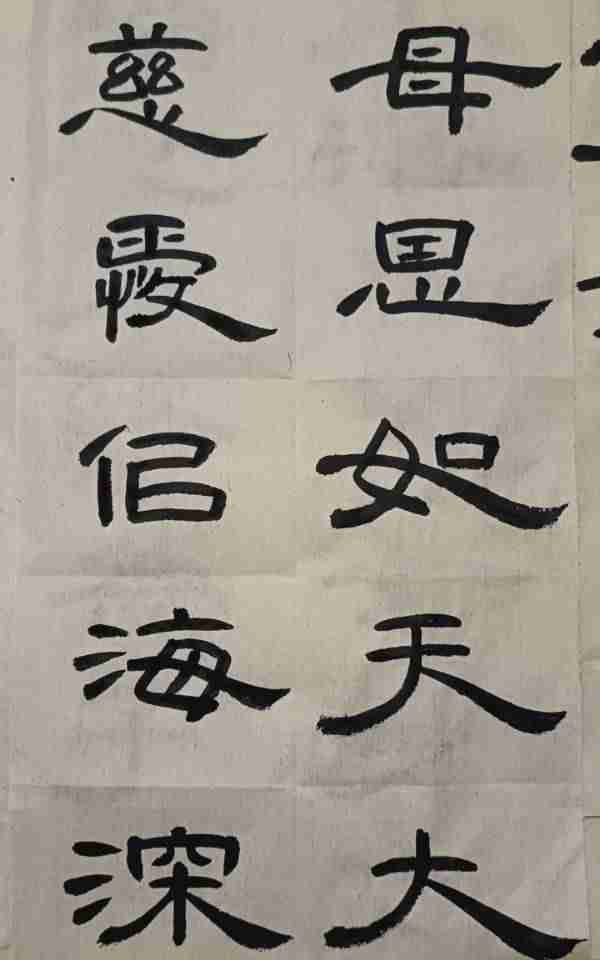 母恩如天大
慈愛佀海深